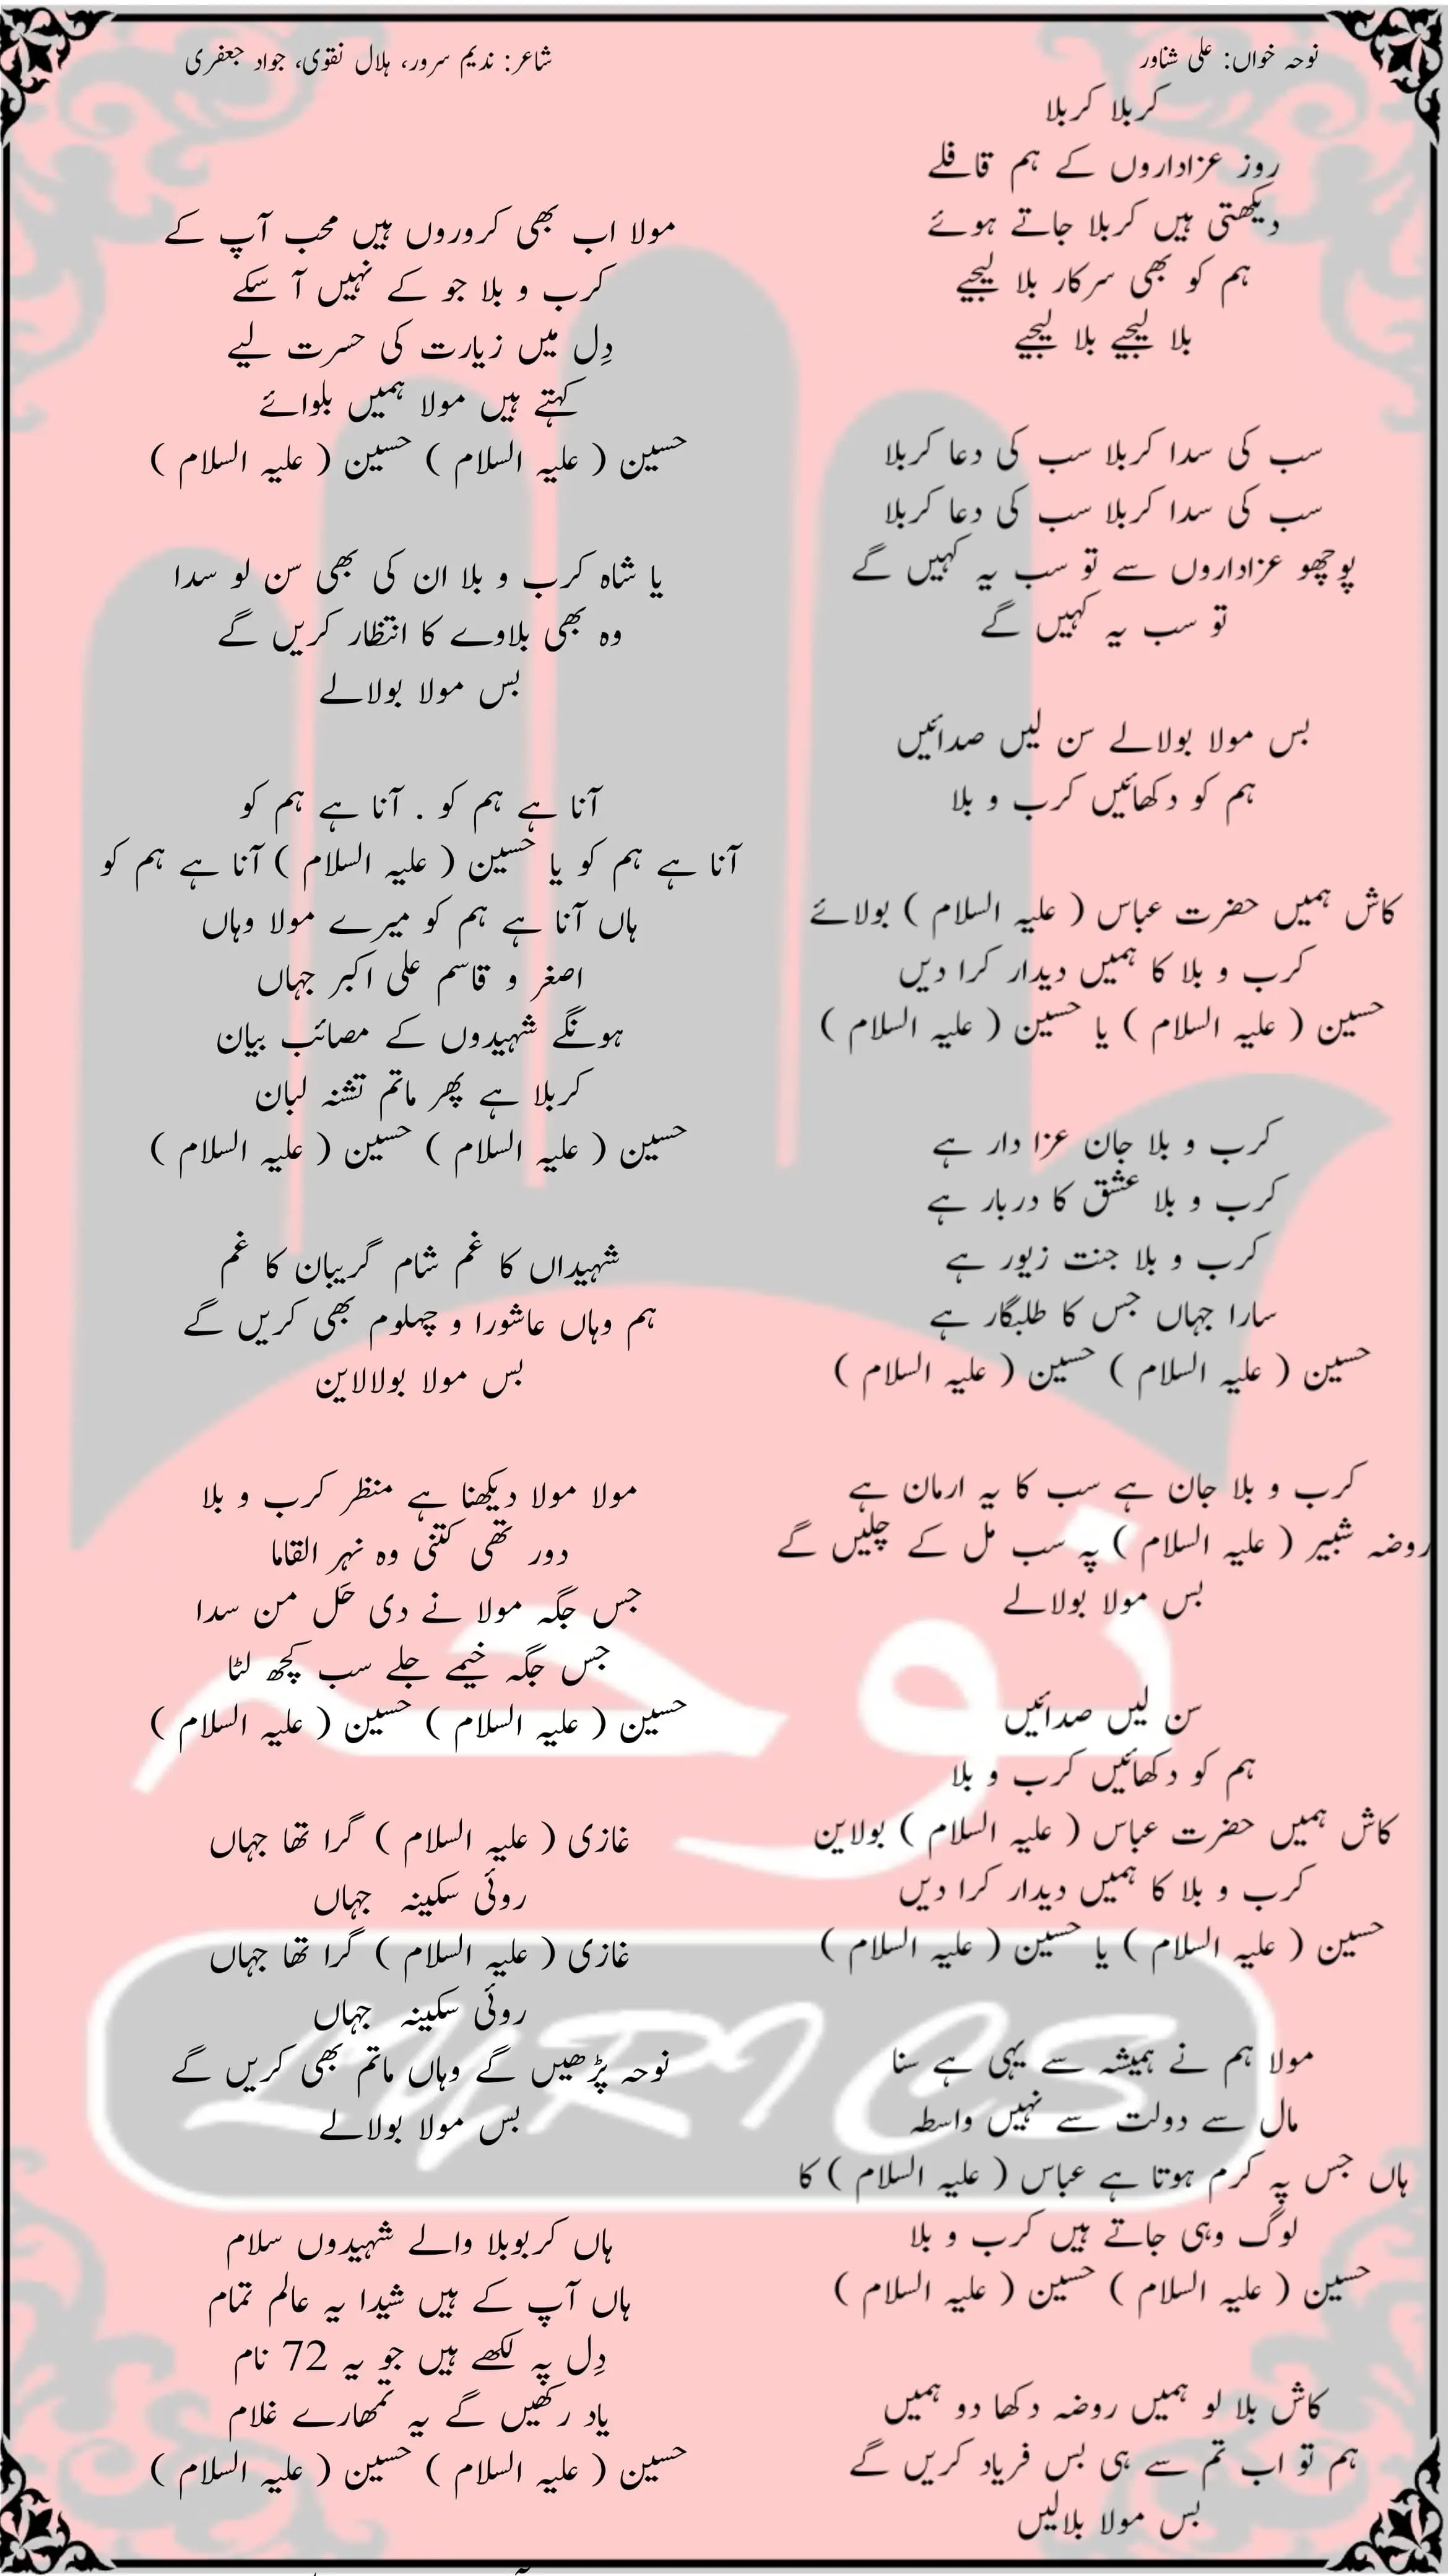 نوحہ خواں: علی شناور
شاعر: ندیم سرور، ہلال نقوی، جواد جعفری
کربلا کربلا
روز عزاداروں کے ہم قافلے
دیکھتی ہیں کربلا جاتے ہوئے
ہم کو بھی سرکار بلا لیجیے
بلا لیجیے بلا لیجیے
سب کی سدا کربلا سب کی دعا کربلا
سب کی سدا کربلا سب کی دعا کربلا
پوچھو عزاداروں سے تو سب یہ کہیں گے
تو سب یہ کہیں گے
بس مولا بولالے سن لیں صدائیں
ہم کو دکھائیں کرب و بلا
کاش ہمیں حضرت عباس ( علیہ السلام ) بولائے
کرب و بلا کا ہمیں دیدار کرا دیں
حسین ( علیہ السلام ) یا حسین ( علیہ السلام )
کرب و بلا جان عزا دار ہے
کرب و بلا عشق کا دربار ہے
کرب و بلا جنت زیور ہے
سارا جہاں جس کا طلبگار ہے
حسین ( علیہ السلام ) حسین ( علیہ السلام )
کرب و بلا جان ہے سب کا یہ ارمان ہے
روضہ شبیر ( علیہ السلام ) پہ سب مل کے چلیں گے
بس مولا بولالے
سن لیں صدائیں
ہم کو دکھائیں کرب و بلا
کاش ہمیں حضرت عباس ( علیہ السلام ) بولاین
کرب و بلا کا ہمیں دیدار کرا دیں
حسین ( علیہ السلام ) یا حسین ( علیہ السلام )
مولا ہم نے ہمیشہ سے یہی ہے سنا
مال سے دولت سے نہیں واسطہ
ہاں جس پہ کرم ہوتا ہے عباس ( علیہ السلام ) کا
لوگ وہی جاتے ہیں کرب و بلا
حسین ( علیہ السلام ) حسین ( علیہ السلام )
کاش بلا لو ہمیں روضہ دکھا دو ہمیں
ہم تو اب تم سے ہی بس فریاد کریں گے
بس مولا بلالیں
مولا اب بھی کروروں ہیں محب آپ کے
کرب و بلا جو کے نہیں آ سکے
دِل میں زیارت کی حسرت لیے
کہتے ہیں مولا ہمیں بلوائے
حسین ( علیہ السلام ) حسین ( علیہ السلام )
یا شاہ کرب و بلا ان کی بھی سن لو سدا
وہ بھی بلاوے کا انتظار کریں گے
بس مولا بولالے
آنا ہے ہم کو . آنا ہے ہم کو
آنا ہے ہم کو یا حسین ( علیہ السلام ) آنا ہے ہم کو
ہاں آنا ہے ہم کو میرے مولا وہاں
اصغر و قاسم علی اکبر جہاں
ہونگے شہیدوں کے مصائب بیان
کربلا ہے پھر ماتم تشنہ لبان
حسین ( علیہ السلام ) حسین ( علیہ السلام )
شہیداں کا غم شام گریبان کا غم
ہم وہاں عاشورا و چہلوم بھی کریں گے
بس مولا بولالاین
مولا مولا دیکھنا ہے منظر کرب و بلا
دور تھی کتنی وہ نہر القاما
جس جگہ مولا نے دی حَل من سدا
جس جگہ خیمے جلے سب کچھ لٹا
حسین ( علیہ السلام ) حسین ( علیہ السلام )
غازی ( علیہ السلام ) گرا تھا جہاں
روئی سکینہ جہاں
غازی ( علیہ السلام ) گرا تھا جہاں
روئی سکینہ جہاں
نوحہ پڑھیں گے وہاں ماتم بھی کریں گے
بس مولا بولالے
ہاں کربوبلا والے شہیدوں سلام
ہاں آپ کے ہیں شیدا یہ عالم تمام
دِل پہ لکھے ہیں جو یہ 72 نام
یاد رکھیں گے یہ تمھارے غلام
حسین ( علیہ السلام ) حسین ( علیہ السلام )
نوحہ
LYRICS